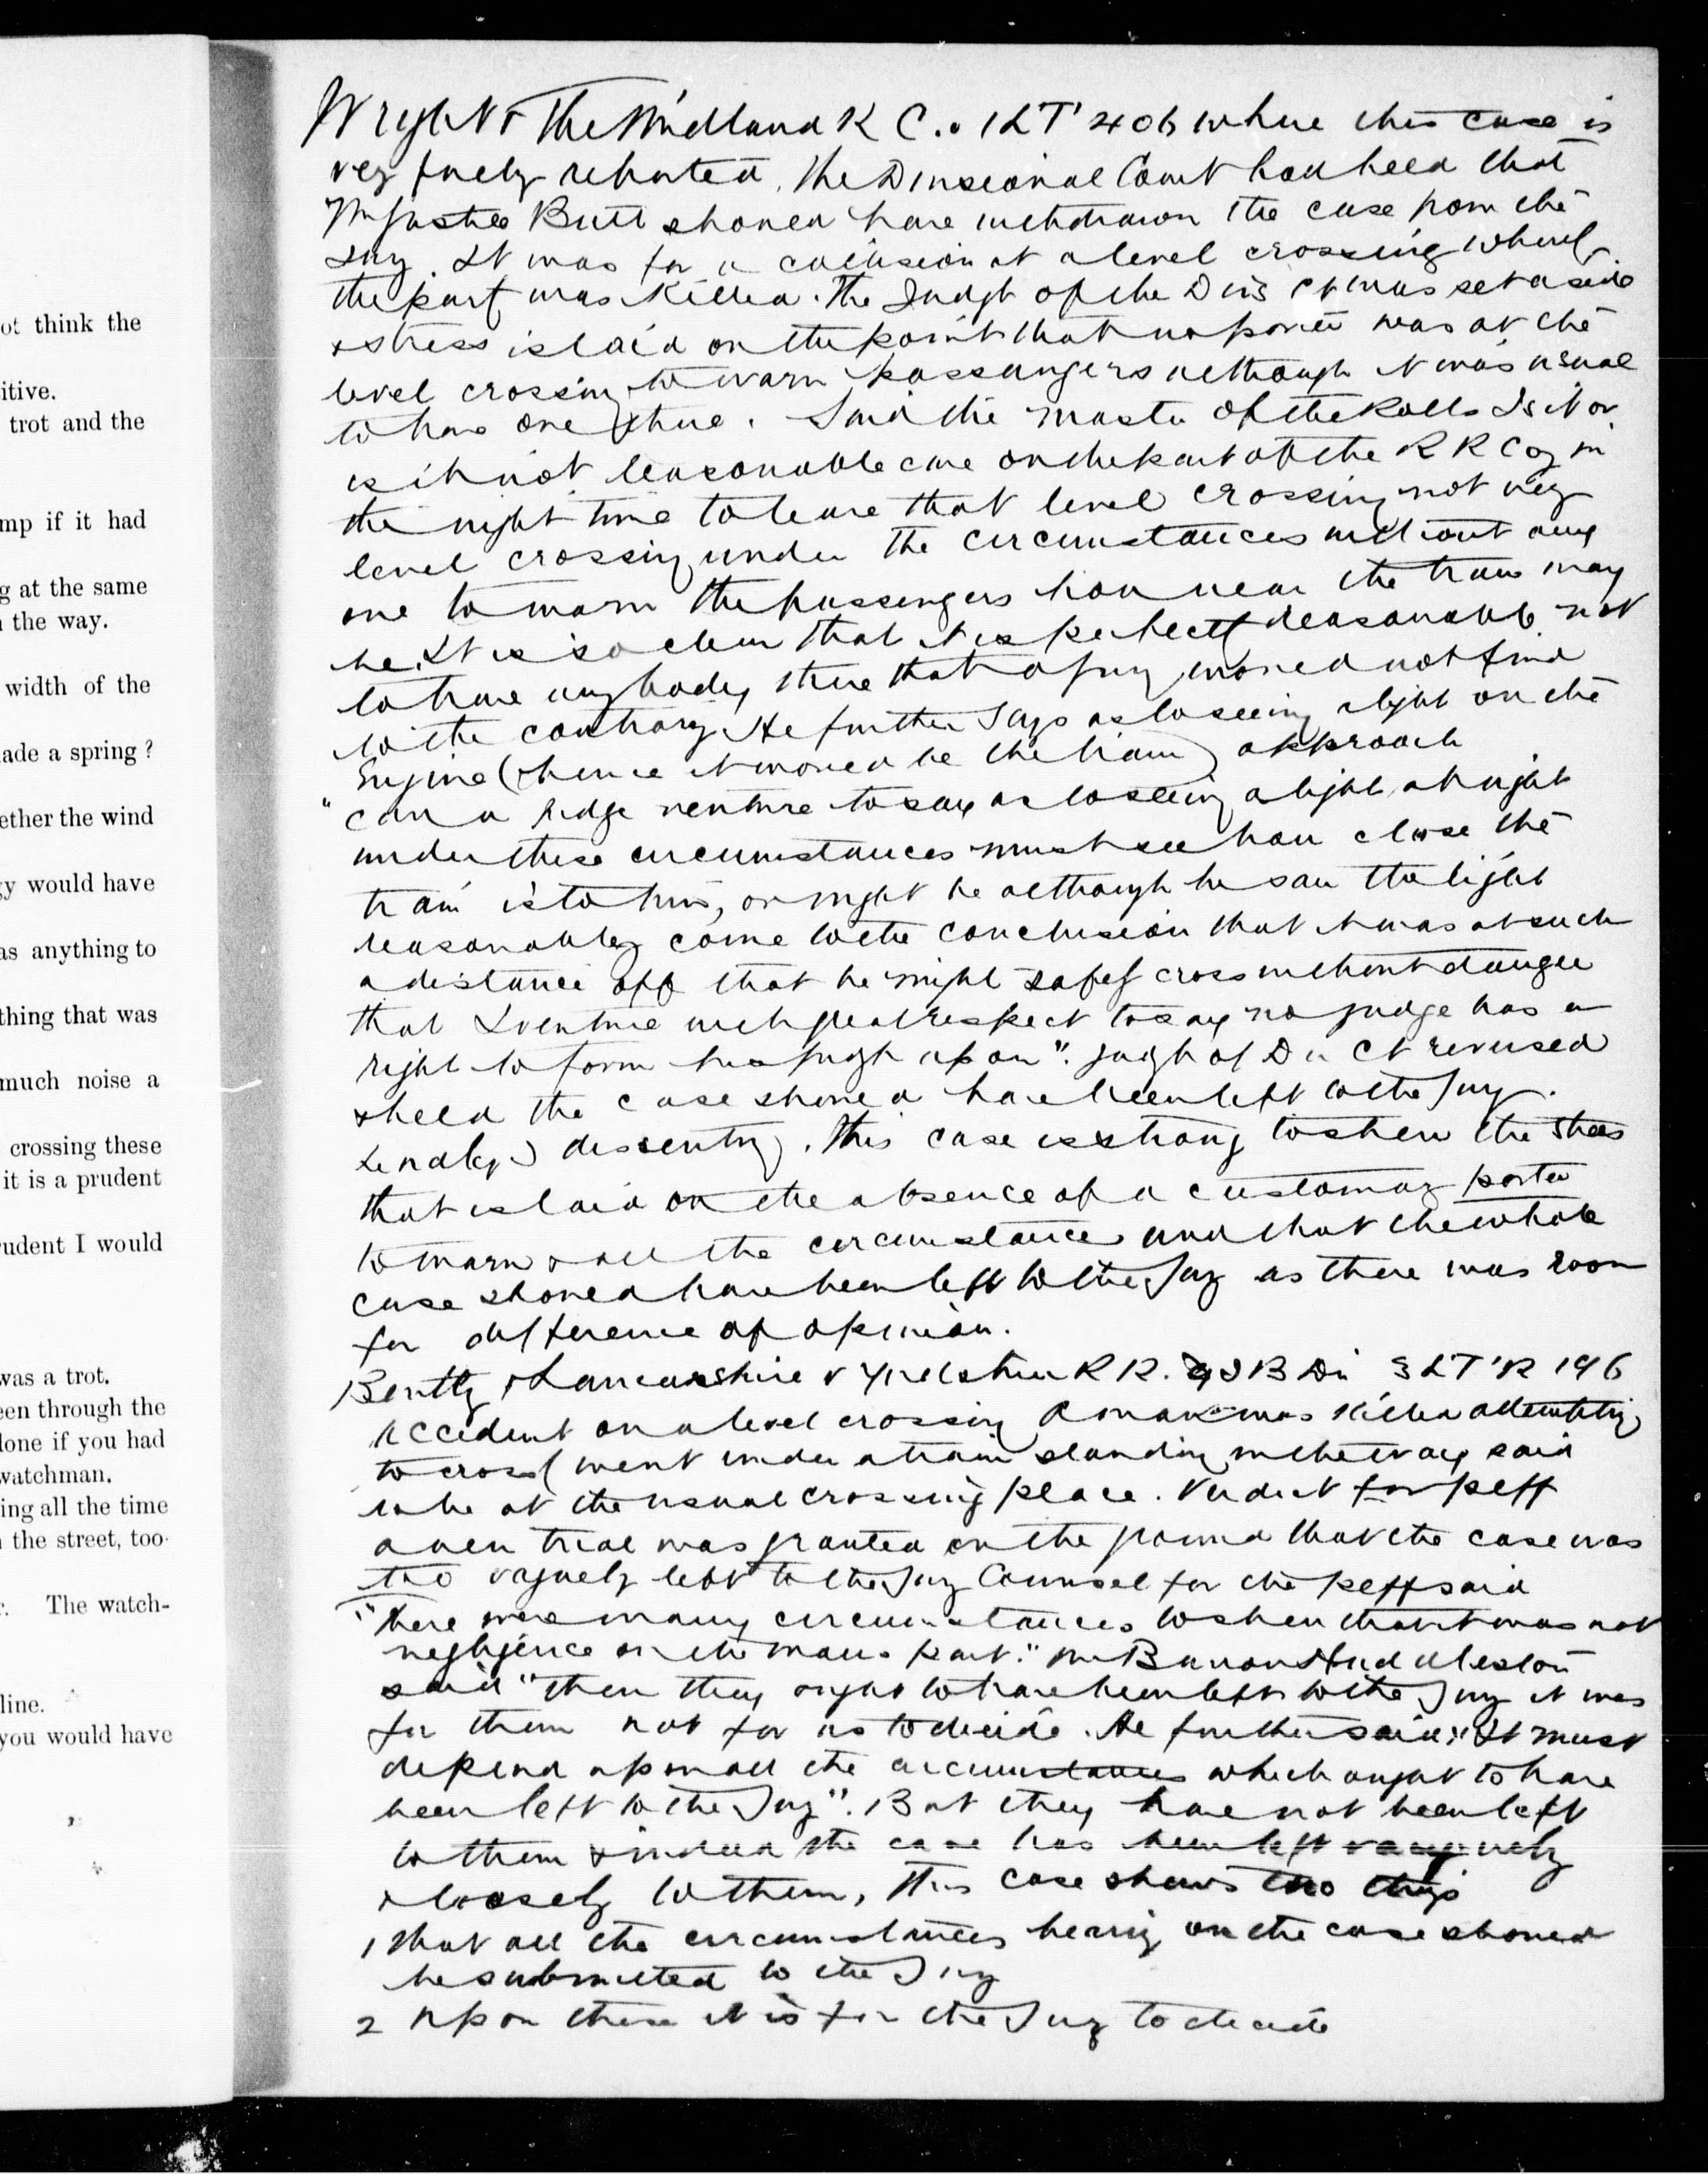 ot think the
itive.
trot and the
mp if it had
g at the same
the way.
width of the
ade a spring ?
ether the wind
gy would have
as anything to
thing that was
much noise a
crossing these
it is a prudent
rudent I would
was a trot.
een through the
done if you had
watchman.
ing all the time
the street, too
r. The watch-
line.
you would have
Wright v The Midland R C.. 1 LT 406 where this case is
very finely reported. The Divisional Court had held that
Mr Justice Butt should have withdrawn the case from the
Jury. It was for a collision at a level crossing whereby
the party was killed. The Judgt of the Divis Ct was set aside
& stress is laid on the point that no porter was at the
level crossing to warn passengers although it was usual
to have one there. Said the Master of the Rolls Is it or
is it not reasonable care on the part of the R R Coy in
the night time to leave that level crossing not very
level crossing under the circumstances without any
one to warn the passengers how near the train may
be. It is so clear that it is perfectly reasonable not
to have anybody there that a jury would not find
to the contrary. He further says as to seeing a light on the
Engine (hence it would be the train) approach
"can a judge venture to say as to seeing a light at night
under these circumstances must see how close the
train is to him, or might he although he saw the light
reasonably come to the conclusion that it was at such
a distance off that he might safely cross without danger
that I venture with great respect to say no judge has a
right to form his judgt upon". Judgt of Div Ct reversed
& held the case should have been left to the Jury.
Lindley J dissenting. This case is strong to shew the stress
that is laid on the absence of a customary porter
to warn & all the circumstances and that the whole
case should have been left to the Jury as there was room
for difference of opinion.
Bently v Lancashire & Yorkshire R R. Q B Div 3 LT R 196
Accident on a level crossing A man was killed attempting
to cross went under a train standing in the way said
to be at the usual crossing place. Verdict for plff
a new trial was granted on the ground that the case was
too vaguely left to the Jury Counsel for the plff said
"there were many circumstances to shew that it was not
negligence on the mans part." Mr Baron Huddleston
said "then they ought to have been left to the Jury it was
for them not for us to decide. He further said: "It must
depend upon all the circumstances which ought to have
been left to the Jury". But they have not been left
to them & indeed the case has been left vaguely
& loosely to them, This case shews two things
1 that all the circumstances bearing on the case should
be submitted to the Jury
2 Upon these it is for the Jury to decide